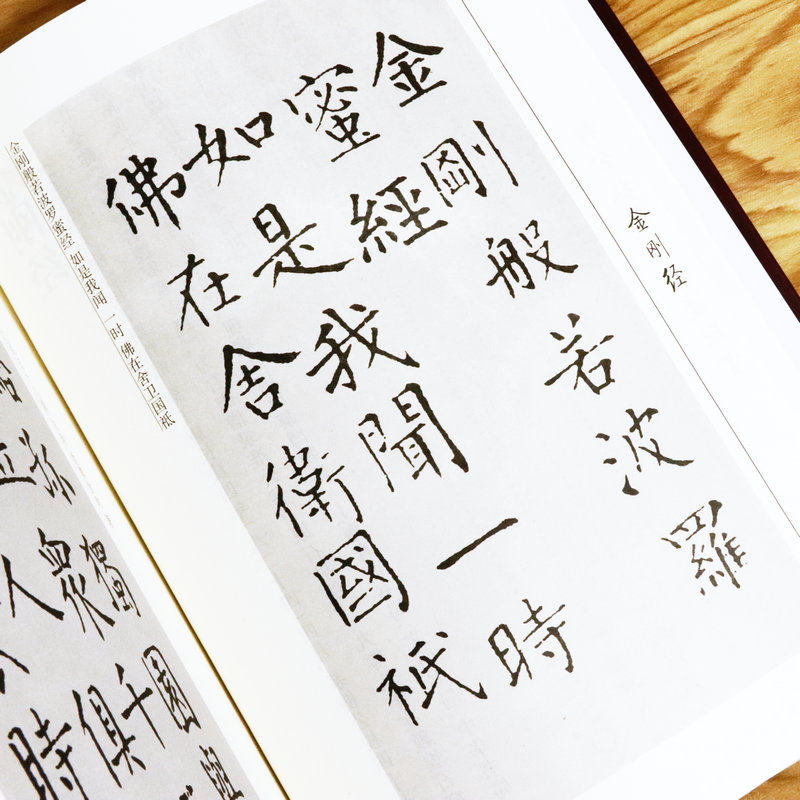 金刚经
金剛般若波羅
蜜經
如是我聞一時
佛在舍衛國祇
金刚般若波罗蜜经 如是我闻 一时 佛在舍卫国祇
孤獨園與
衆千
人俱
時